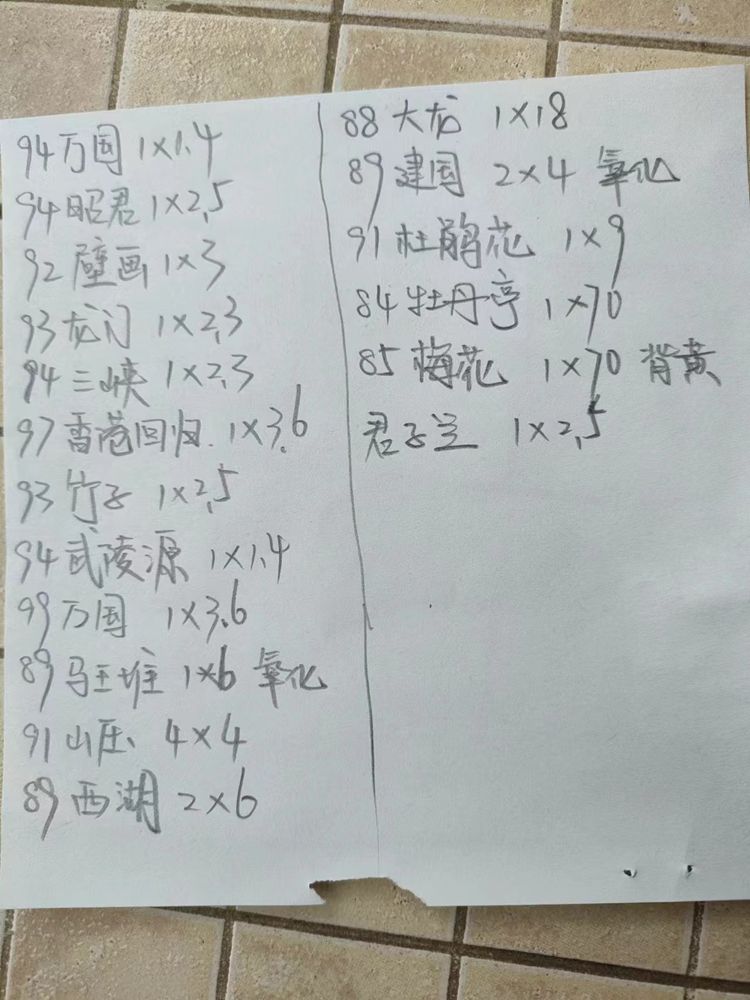 94万国 1×1.4
94昭君 1×2.5
92壁画 1×3
93龙门 1×2.3
94三峡 1×2.3
97香港回归. 1×3.6
93竹子 1×2.5
94武陵源 1×1.4
99万国 1×3.6
89马王堆 1×6 氧化
91山压 4×4
89西湖 2×6
88大龙 1×18
89建国 2×4 氧化
91杜鹃花 1×9
84牡丹亭 1×70
85梅花 1×70 背黄
君子兰 1×2.5